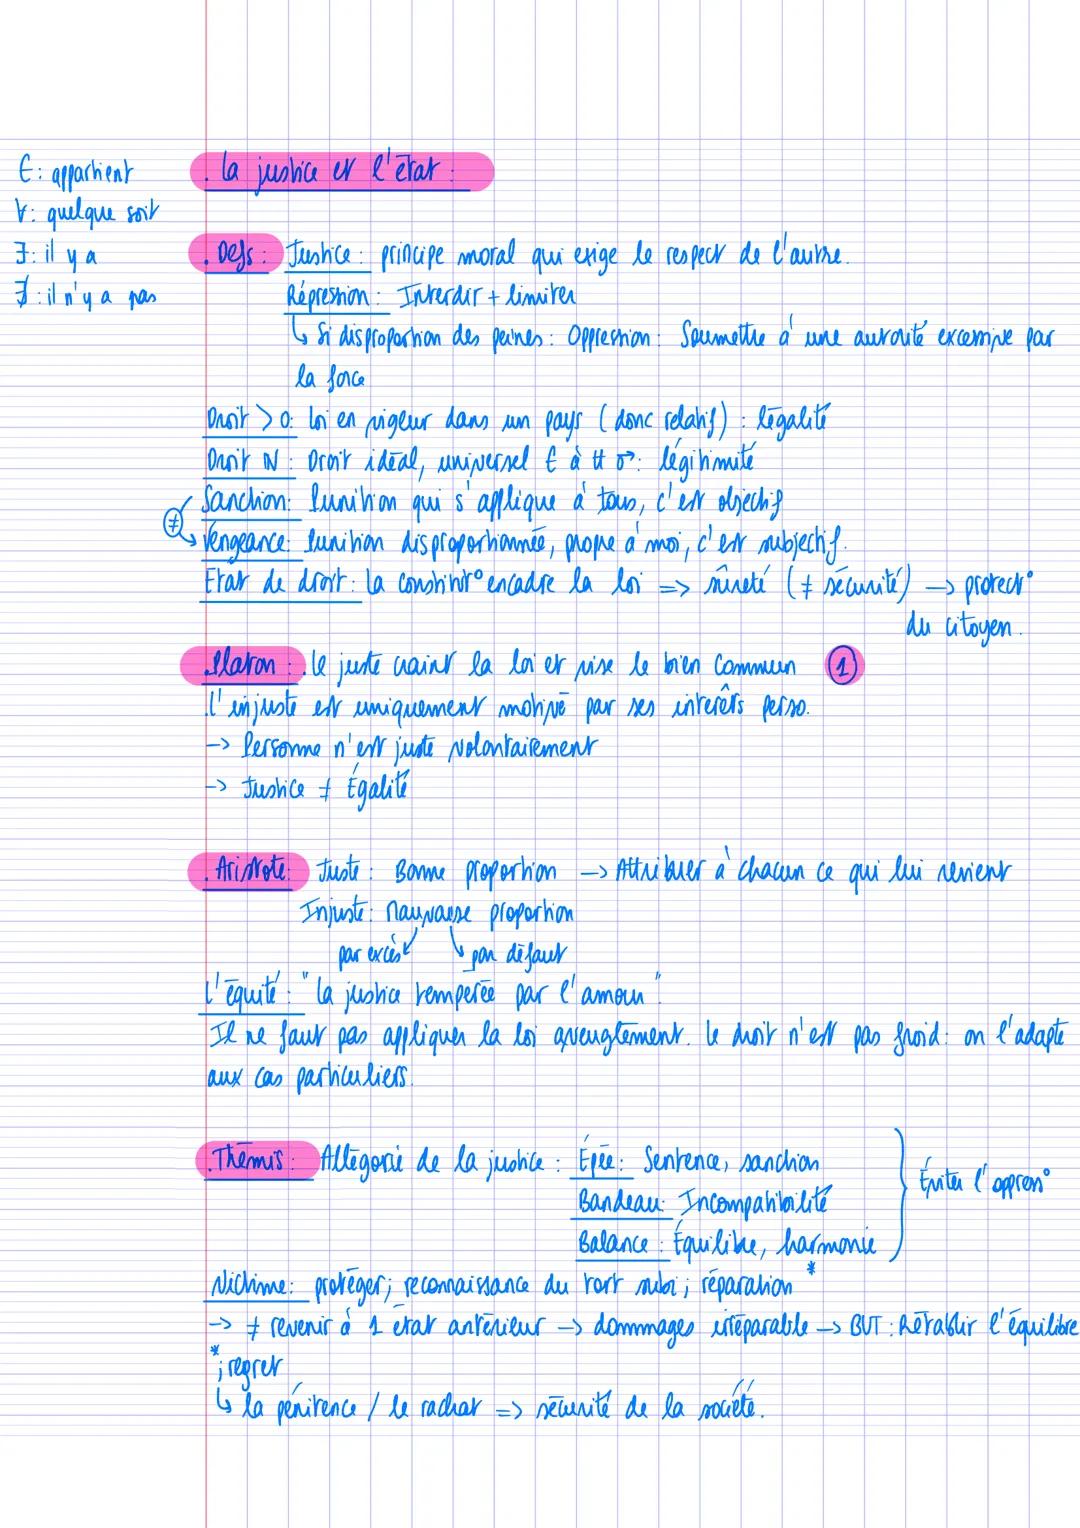 ∈: appartient
∀: quelque soit
∃: il y a
∄: il n'y a pas
. La justice et l'état :
. Defs : Justice : principe moral qui exige le respect de l'autre.
Répression : Interdir + limiter
↳ Si disproportion des peines : Oppression : Soumettre à une autorité excessive par
la force
Droit > 0: loi en vigeur dans un pays (donc relatif) : légalité
Droit N : Droit idéal, universel ∈ à tt : légitimité
Sanction: Punition qui s'applique à tous, c'est objectif
≠
Vengeance: Punition disproportionnée, propre à moi, c'est subjectif.
Etat de droit : la constitut° encadre la loi => sûreté (≠ sécurité) -> protect°
du citoyen.
. Platon : . le juste craint la loi et vise le bien commun 1
. l'injuste est uniquement motivé par ses interêts perso.
-> Personne n'est juste volontairement
-> Justice ≠ Égalité
. Aristote: Juste : Bonne proportion -> Attribuer à chacun ce qui lui revient
Injuste : Mauvaise proportion
par excès par défaut
L'équité : "la justice temperée par l'amour".
Il ne faut pas appliquer la loi aveuglément. Le droit n'est pas froid : on l'adapte
aux cas particuliers.
. Thémis : Allégorie de la justice : Épée : Sentence, sanction
Bandeau: Incompatibilité
Balance : Équilibre, harmonie
Éviter l'oppress°
Victime: protéger; reconnaissance du tort subi; réparation *
-> ≠ revenir à 1 état antérieur -> dommages irréparable -> BUT : Rétablir l'équilibre
* ; regret
↳ la pénitence / le rachat => sécurité de la société.